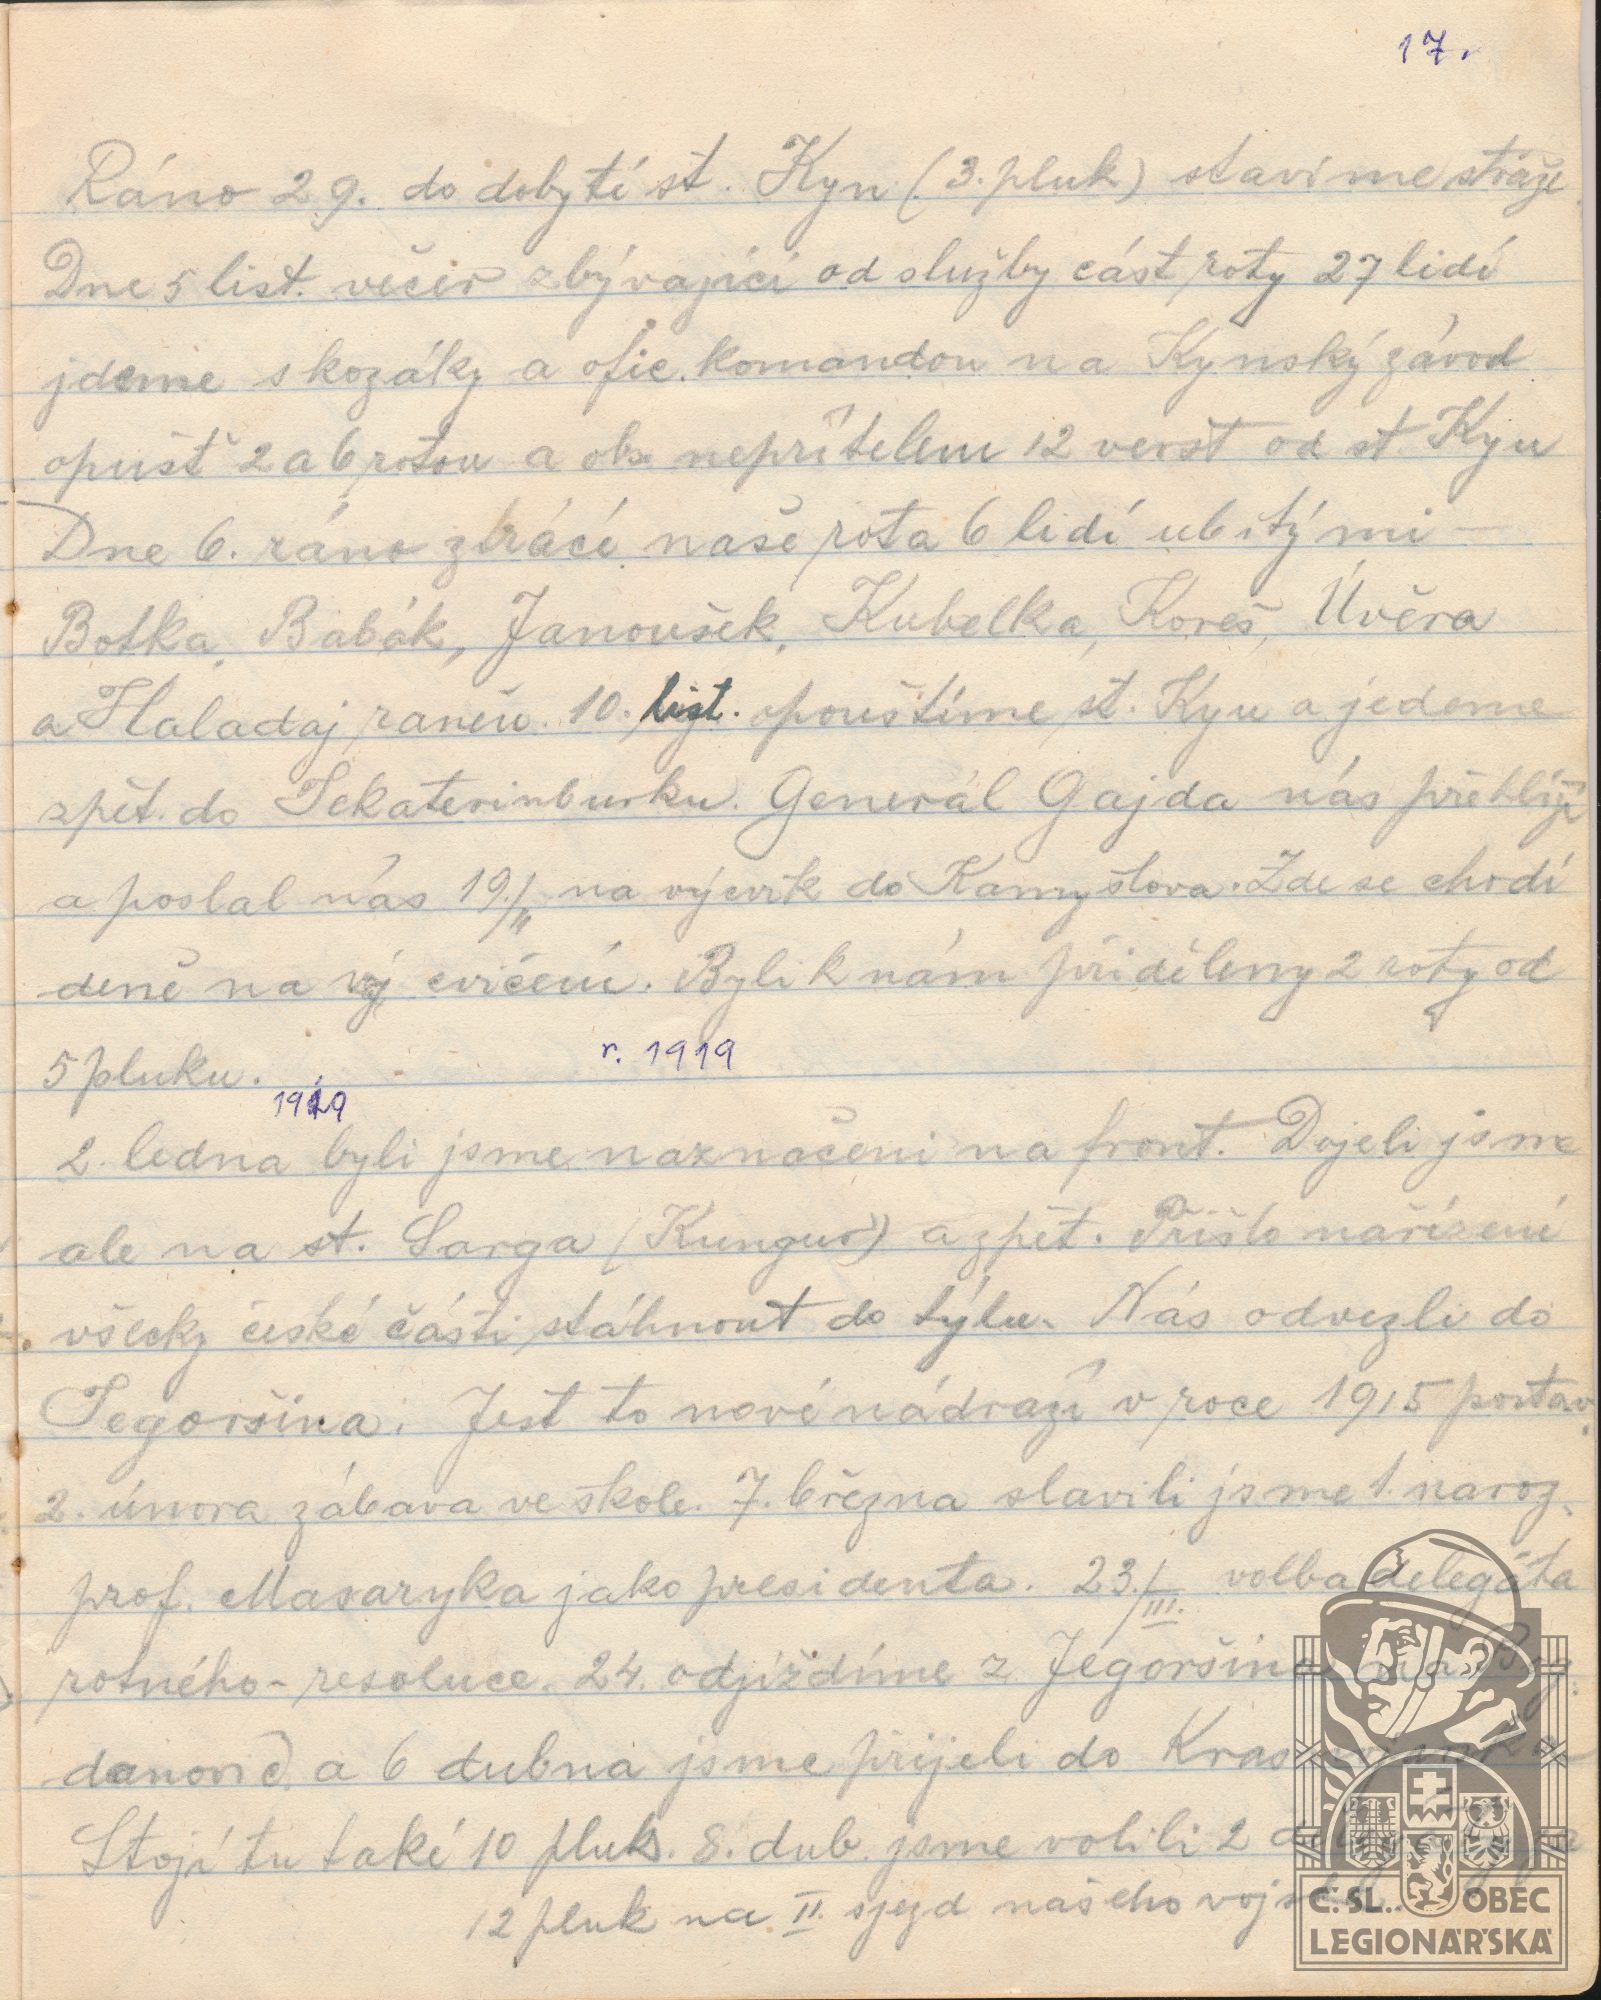 17.
Ráno 29. do dobytí st. Kyn (3. pluk) stavíme stráže
Dne 5 list. večer zbývající od služby cást roty 27 lidí
jdeme s kozáky a ofic. komandou na Kynský závod
opušť 2 a 6 rotou a obs. nepřítelem 12 verst od st. Kyn
Dne 6. ráno ztrácí naše rota 6 lidí ubitými —
Botka, Babák, Janoušek, Kubelka, Koreš, Úvěra
a Haladaj raněn. 10. list. opouštíme st. Kyn a jedeme
zpět do Jekaterinburku. Generál Gajda nás přehlíží
a poslal nás 19./II na výcvik do Kamyšlova. Zde se chodí
deně na vý cvičení. Byli k nám přiděleny 2 roty od
5 pluku.
r. 1919
1919
2. ledna byli jsme naznačeni na front. Dojeli jsme
ale na st. Sarga (Kungur) a zpět. Přišlo nařízení
všecky české části stáhnout do týlu. Nás odvezli do
Jegoršina. Jest to nové nádraží v roce 1915 postav.
2. února zábava ve škole. 7. března slavili jsme 1. naroz.
prof. Masaryka jako presidenta. 23./III. volba delegáta
rotného - resoluce. 24. odjíždíme z Jegoršina na Bog
danovič a 6 dubna jsme přijeli do Krasnojarska
Stojí tu také 10 pluk. 8. dub. jsme volili 2
12 pluk na II. sjezd našeho vojska.
Č. SL. OBEC
LEGIONÁŘSKÁ